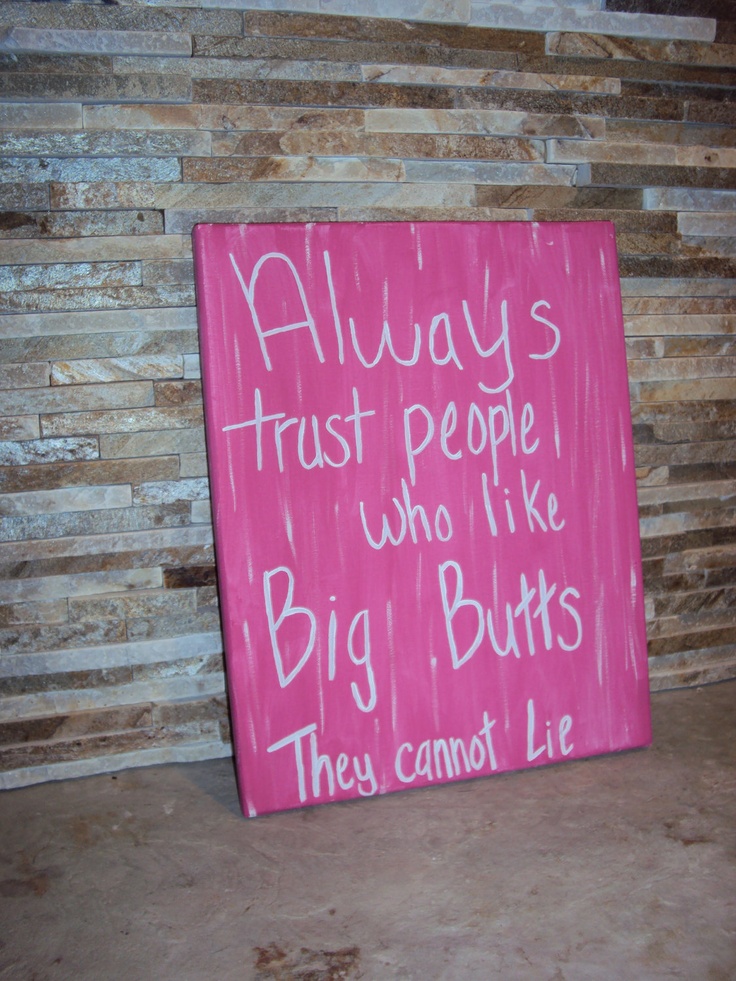 Always
trust people
who like
Big Butts
They cannot Lie